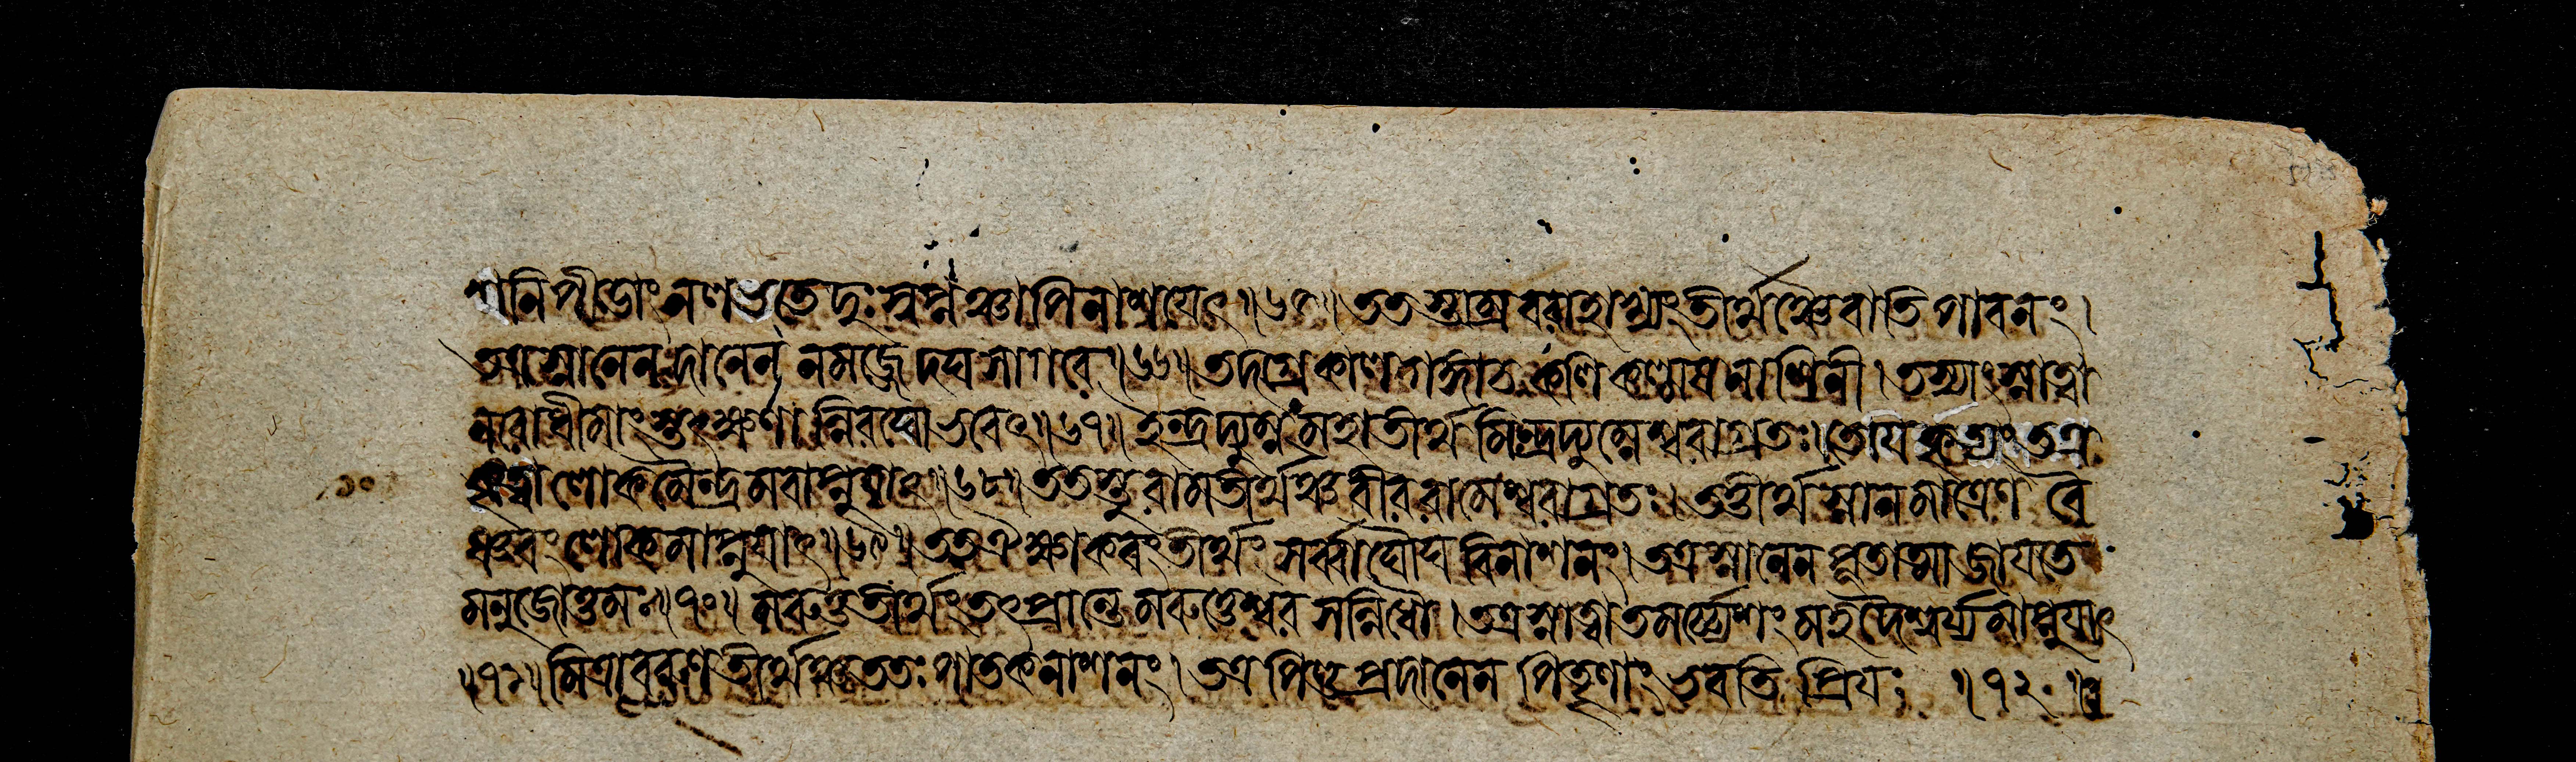 শনিপীডাং নলভতে দুঃস্বপ্নঞ্চাপিনাশযেৎ॥৬৫॥ ততস্তাম্রবরাহাখ্যং তীর্থঞ্চৈবাতিপাবনং।
স্নানেন দানেন নমজ্জেদঘসাগরে॥৬৬॥ তদগ্রে কালগঙ্গাচ কলিকল্মষনাশিনী। তস্যাং স্নাত্বা
নরোধীমাং স্তৎক্ষণান্নিরঘোভবেৎ॥৬৭॥ ইন্দ্রদ্যুম্নং মহাতীর্থমিন্দ্রদ্যুম্নেশ্বরাগ্রতঃ। তোযকৃত্যং তত্র
কৃত্বা লোকমৈন্দ্রমবাপ্নুযাৎ॥৬৮॥ ততস্তু রামতীর্থঞ্চ বীররামেশ্বরাগ্রতঃ। তত্তীর্থস্নানমাত্রেণ বৈ
ষ্ণবং লোকমাপ্নুযাৎ॥৬৯॥ তত ঐক্ষ্বাকবং তীর্থং সর্ব্বাঘৌঘবিনাশনং। তত্রস্নানেন পূতাত্মা জাযতে
মনুজোত্তমঃ॥৭০॥ মরুত্ততীর্থং তৎপ্রান্তে মরুত্তেশ্বরসন্নিধৌ। তত্রস্নাত্বা তমর্চ্চ্যেশং মহদৈশ্বর্য্যমাপ্নুযাৎ
॥৭১॥ মৈত্রাবরুণতীর্থঞ্চ ততঃ পাতকনাশনং। তত্র পিণ্ডপ্রদানেন পিতৄণাং ভবতি প্রিযঃ ॥৭২॥